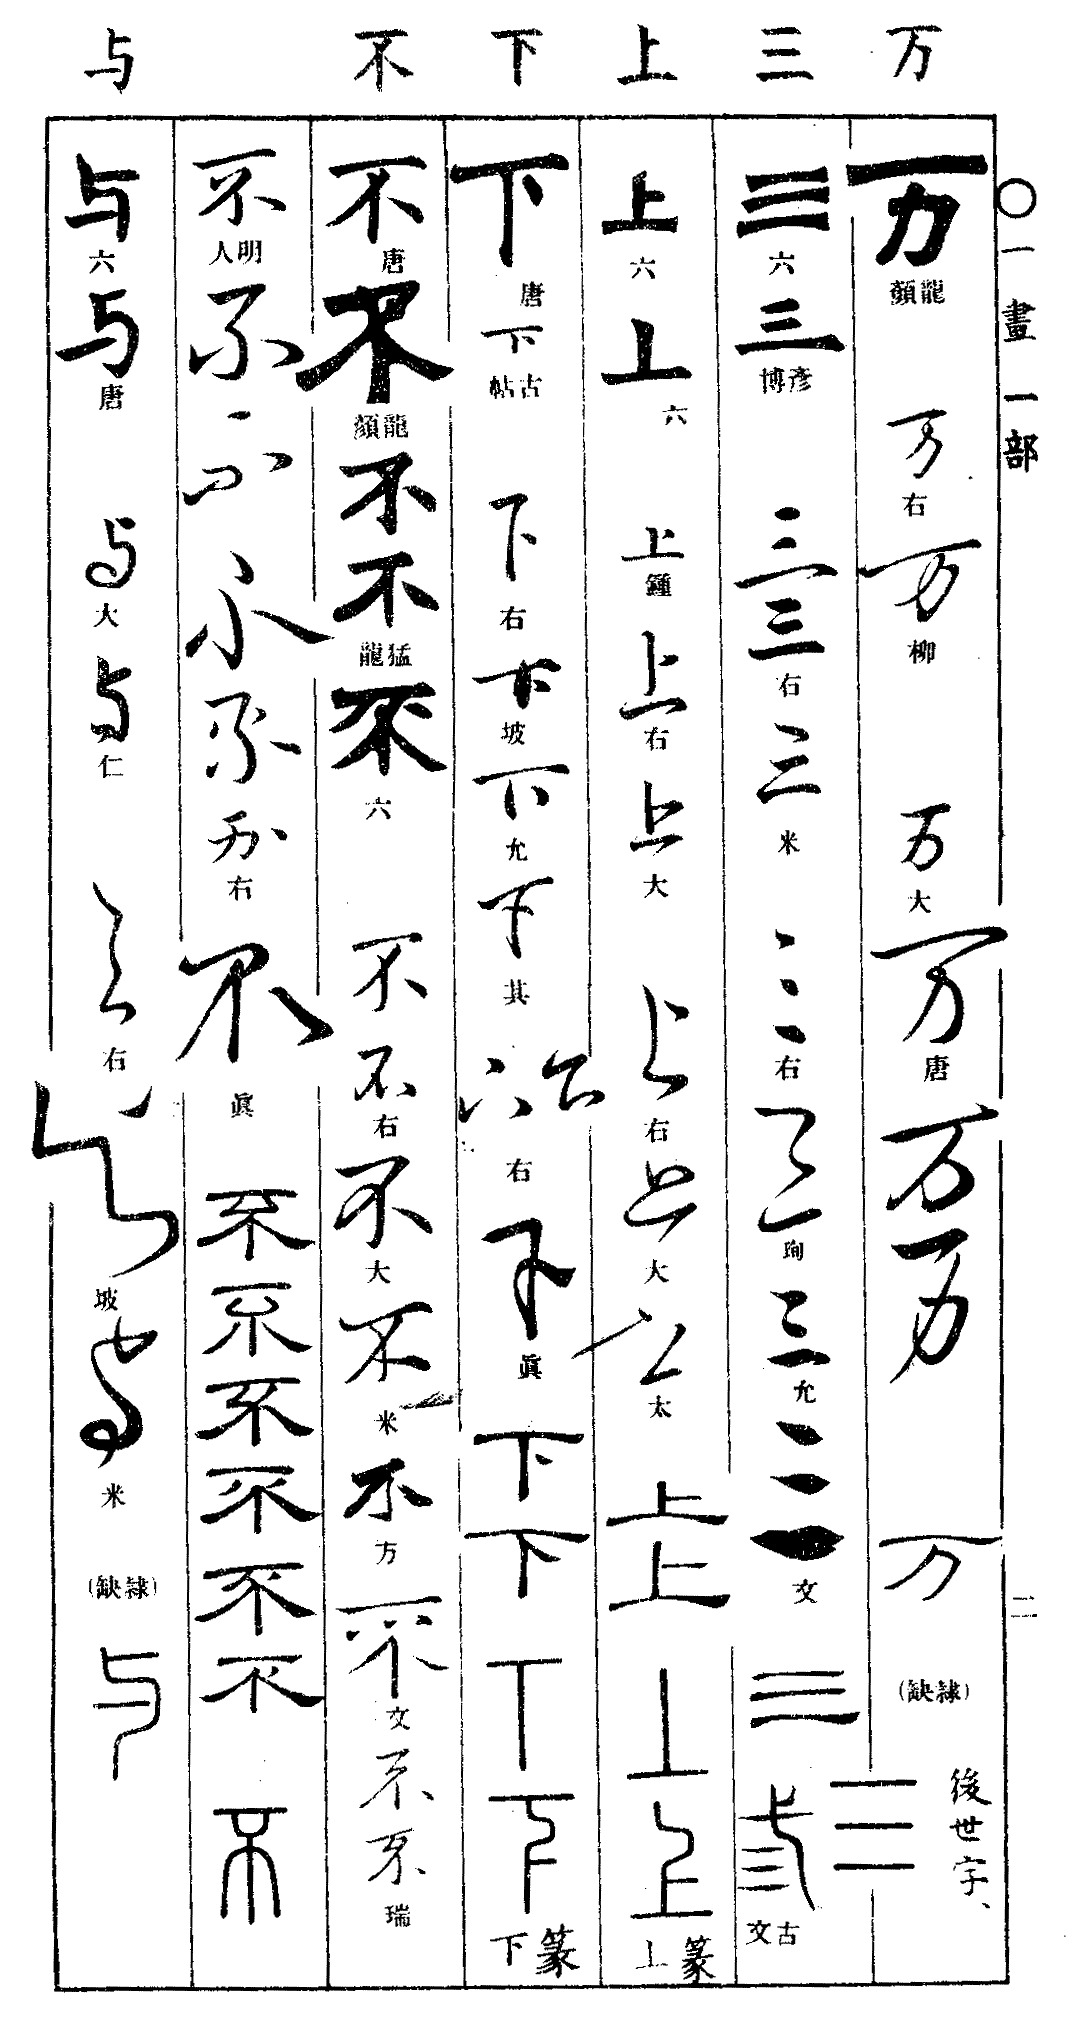 万 三 上 下 不 与
〇一畫 一部
二
万
万
龍顏
万
右
万
柳
万
大
万
唐
万
万
万
(隷缺)
後世字、
三
六
三
彥博
三
三
右
三
米
三
右
三
珣
三
允
三
文
三
三
弎
古文
上
六
上
六
上
鍾
上
右
上
大
上
右
上
大
上
太
上
上
上
上
篆上
下
唐
下
古帖
下
右
下
坡
下
允
下
其
下
下
右
下
眞
下
下
下
下
篆下
不
唐
不
龍顏
不
不
猛龍
不
六
不
不
右
不
大
不
米
不
方
不
文
不
不
瑞
不
明人
不
不
不
不
不
右
不
眞
不
不
不
不
不
不
不
与
六
与
唐
与
大
与
仁
与
右
与
坡
与
米
(隷缺)
与